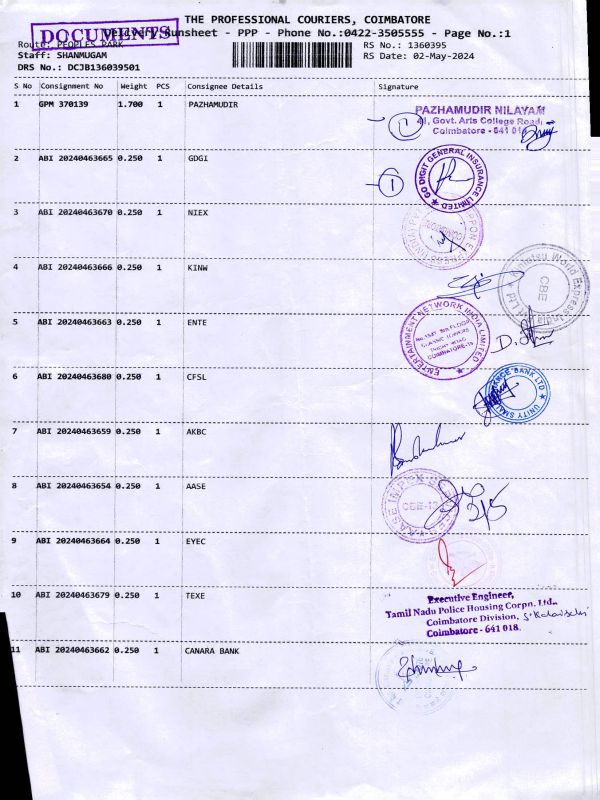 THE PROFESSIONAL COURIERS, COIMBATORE
DOCUMENTS
Delivery Runsheet - PPP - Phone No.:0422-3505555 - Page No.:1
Route: PEOPLES PARK
RS No.: 1360395
Staff: SHANMUGAM
RS Date: 02-May-2024
DRS No.: DCJB136039501
S No Consignment No Weight PCS Consignee Details Signature
1 GPM 370139 1.700 1 PAZHAMUDIR
1 PAZHAMUDIR NILAYAM
41, Govt. Arts College Road,
Coimbatore - 641 018
2 ABI 20240463665 0.250 1 GDGI
1 GO DIGIT GENERAL INSURANCE LIMITED
3 ABI 20240463670 0.250 1 NIEX
4 ABI 20240463666 0.250 1 KINW
World Express
CBE
5 ABI 20240463663 0.250 1 ENTE
ENTERTAINMENT NETWORK INDIA LIMITED
CLASSIC TOWERS
TRICHY ROAD
COIMBATORE-18
6 ABI 20240463680 0.250 1 CFSL
UNITY SMALL FINANCE BANK LTD
7 ABI 20240463659 0.250 1 AKBC
8 ABI 20240463654 0.250 1 AASE
9 ABI 20240463664 0.250 1 EYEC
10 ABI 20240463679 0.250 1 TEXE
Executive Engineer,
Tamil Nadu Police Housing Corpn. Ltd.,
Coimbatore Division,
Coimbatore - 641 018.
11 ABI 20240463662 0.250 1 CANARA BANK